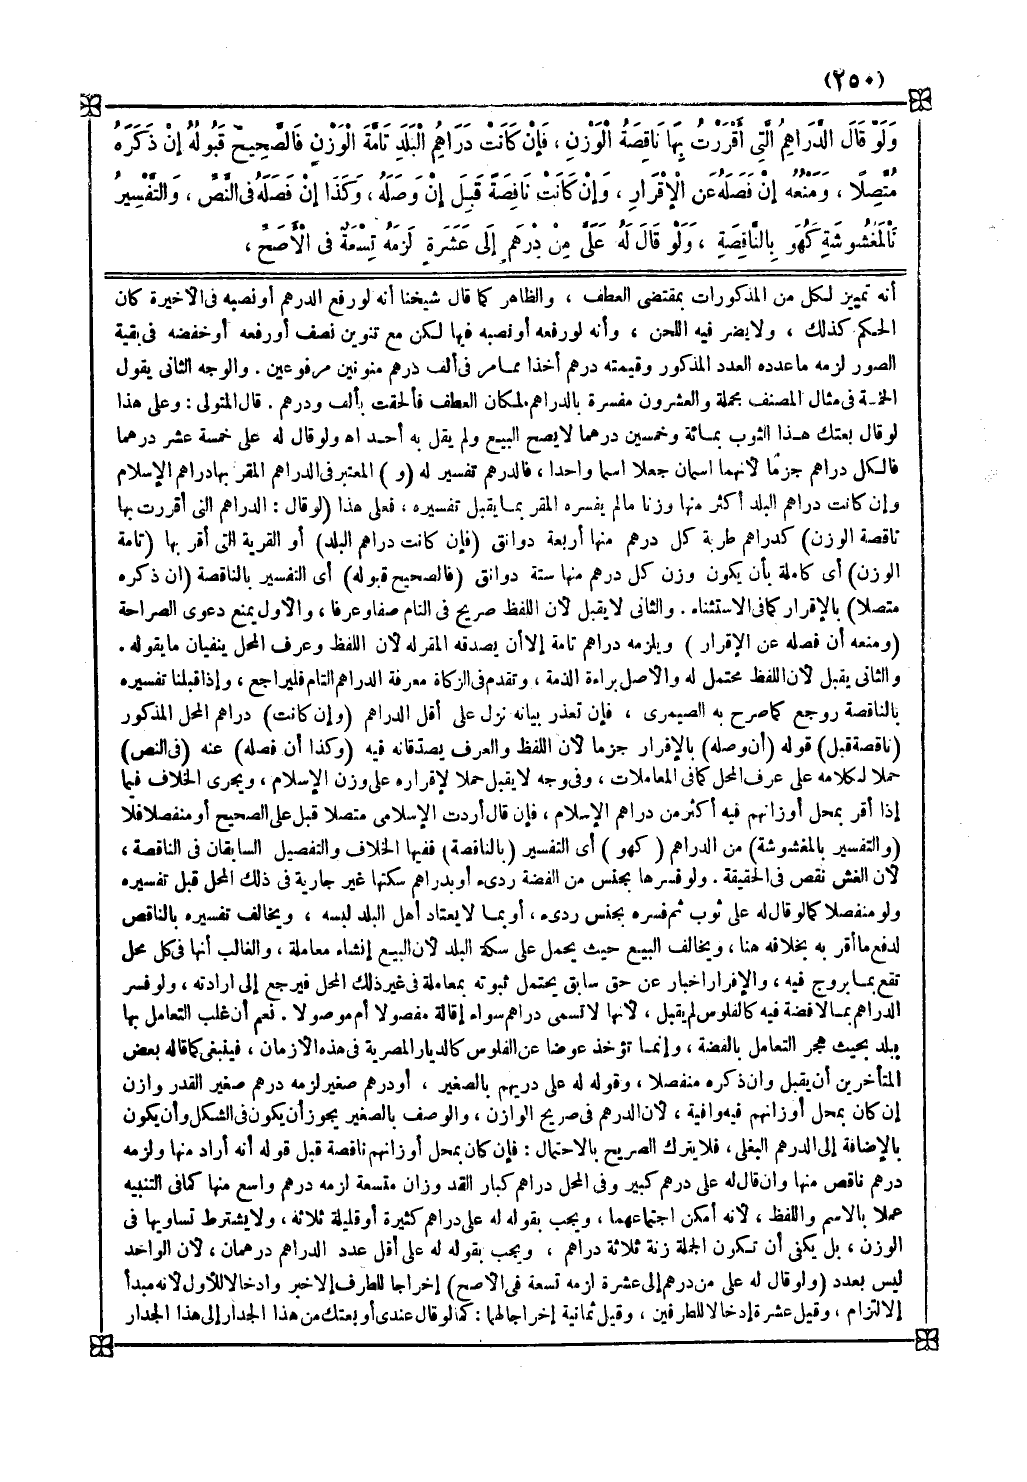 (٢٥٠)
وَلَوْ قَالَ الدَّرَاهِمُ الَّتِي أَقْرَرْتُ بِهَا نَاقِصَةُ الْوَزْنِ ، فَإِنْ كَانَتْ دَرَاهِمُ الْبَلَدِ تَامَّةَ الْوَزْنِ فَالصَّحِيحُ قَبُولُهُ إِنْ ذَكَرَهُ
مُتَّصِلًا ، وَمَنْعُهُ إِنْ فَصَلَهُ عَنِ الْإِقْرَارِ ، وَإِنْ كَانَتْ نَاقِصَةً قُبِلَ إِنْ وَصَلَهُ ، وَكَذَا إِنْ فَصَلَهُ فِى النَّصِّ ، وَالتَّفْسِيرُ
بِالْمَغْشُوشَةِ كَهُوَ بِالنَّاقِصَةِ ، وَلَوْ قَالَ لَهُ عَلَىَّ مِنْ دِرْهَمٍ إِلَى عَشَرَةٍ لَزِمَهُ تِسْعَةٌ فِى الْأَصَحِّ ،
أنه تمييز لكل من المذكورات بمقتضى العطف ، والظاهر كما قال شيخنا أنه لو رفع الدرهم أو نصبه فى الأخيرة كان
الحكم كذلك ، ولا يضر فيه اللحن ، وأنه لو رفعه أو نصبه فيها لكن مع تنوين نصف أو رفعه أو خفضه فى بقية
الصور لزمه ما عدده العدد المذكور وقيمته درهم أخذا مما مر فى ألف درهم منونين مرفوعين . والوجه الثانى يقول
الخمسة فى مثال المصنف مجملة والعشرون مفسرة بالدراهم لمكان العطف فألحقت بألف ودرهم . قال المتولى : وعلى هذا
لو قال بعتك هذا الثوب بمائة وخمسين درهما لا يصح البيع ولم يقل به أحد اه ولو قال له على خمسة عشر درهما
فالكل دراهم جزما لأنهما اسمان جعلا اسما واحدا ، فالدرهم تفسير له (و) المعتبر فى الدراهم المقر بها دراهم الإسلام
وإن كانت دراهم البلد أكثر منها وزنا مالم يفسره المقر بما يقبل تفسيره ، فعلى هذا (لو قال : الدراهم التى أقررت بها
ناقصة الوزن) كدراهم طبرية كل درهم منها أربعة دوانق (فإن كانت دراهم البلد) أو القرية التى أقر بها (تامة
الوزن) أى كاملة بأن يكون وزن كل درهم منها ستة دوانق (فالصحيح قبوله) أى التفسير بالناقصة (ان ذكره
متصلا) بالإقرار كما فى الاستثناء . والثانى لا يقبل لأن اللفظ صريح فى التام وضعا وعرفا ، والأول يمنع دعوى الصراحة
(ومنعه أن فصله عن الإقرار ) ويلزمه دراهم تامة إلا أن يصدقه المقر له لأن اللفظ وعرف المحل ينفيان ما يقوله .
والثانى يقبل لأن اللفظ محتمل له والأصل براءة الذمة ، وتقدم فى الزكاة معرفة الدراهم التام فليراجع ، وإذا قبلنا تفسيره
بالناقصة روجع كما صرح به الصيمرى ، فإن تعذر بيانه نزل على أقل الدراهم (وإن كانت) دراهم المحل المذكور
(ناقصة قبل) قوله (أن وصله) بالإقرار جزما لأن اللفظ والعرف يصدقانه فيه (وكذا أن فصله) عنه (فى النص)
حملا لكلامه على عرف المحل كما فى المعاملات ، وفى وجه لا يقبل حملا لإقراره على وزن الإسلام ، ويجرى الخلاف فيما
إذا أقر بمحل أوزانهم فيه أكثر من دراهم الإسلام ، فإن قال أردت الإسلامى متصلا قبل على الصحيح أو منفصلا فلا
(والتفسير بالمغشوشة) من الدراهم ( كهو ) أى التفسير (بالناقصة) ففيها الخلاف والتفصيل السابقان فى الناقصة ،
لأن الغش نقص فى الحقيقة . ولو فسرها بجنس من الفضة ردىء أو بدراهم سكتها غير جارية فى ذلك المحل قبل تفسيره
ولو منفصلا كما لو قال له على ثوب ثم فسره بجنس ردىء ، أو بما لا يعتاد أهل البلد لبسه ، ويخالف تفسيره بالناقص
لدفع ما أقر به بخلافه هنا ، ويخالف البيع حيث يحمل على سكة البلد لأن البيع إنشاء معاملة ، والغالب أنها فى كل محل
تقع بما يروج فيه ، والإقرار اخبار عن حق سابق يحتمل ثبوته بمعاملة فى غير ذلك المحل فيرجع إلى ارادته ، ولو فسر
الدراهم بما لا فضة فيه كالفلوس لم يقبل ، لأنها لا تسمى دراهم سواء إقالة مفصولا أم موصولا . نعم أن غلب التعامل بها
ببلد بحيث هجر التعامل بالفضة ، وإنما تؤخذ عوضا عن الفلوس كالديار المصرية فى هذه الأزمان ، فينبغى كما قاله بعض
المتأخرين أن يقبل وان ذكره منفصلا ، وقوله له على دريهم بالصغير ، أو درهم صغير لزمه درهم صغير القدر وازن
إن كان بمحل أوزانهم فيه وافية ، لأن الدرهم فى صريح الوازن ، والوصف بالصغير يجوز أن يكون فى الشكل وأن يكون
بالإضافة إلى الدرهم البغلى ، فلا يترك الصريح بالاحتمال : فإن كان بمحل أوزانهم ناقصة قبل قوله أنه أراد منها ولزمه
درهم ناقص منها وان قال له على درهم كبير وفى المحل دراهم كبار القد وزان متسعة لزمه درهم واسع منها كما فى التنبيه
عملا بالاسم واللفظ ، لأنه أمكن اجتماعهما ، ويجب بقوله له على دراهم كثيرة أو قليلة ثلاثة ، ولا يشترط تساويها فى
الوزن ، بل يكفى أن تكون الجملة زنة ثلاثة دراهم ، ويجب بقوله له على أقل عدد الدراهم درهمان ، لأن الواحد
ليس بعدد (ولو قال له على من درهم إلى عشرة لزمه تسعة فى الأصح) إخراجا للطرف الأخير وادخالا للأول لأنه مبدأ
الالتزام ، وقيل عشرة إدخالا للطرفين ، وقيل ثمانية إخراجا لهما : كما لو قال عندى أو بعتك من هذا الجدار إلى هذا الجدار